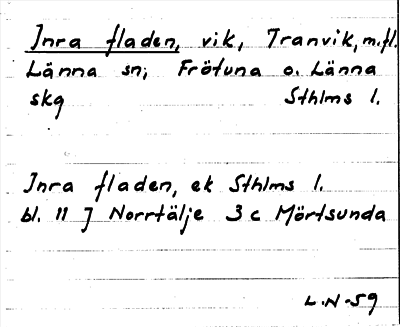 Inra fladen, vik, Tranvik, m.fl.
Länna sn; Frötuna o. Länna
skg Sthlms l.
Inra fladen, ek Sthlms l.
bl. 11 J Norrtälje 3 c Mörtsunda
L.N-59